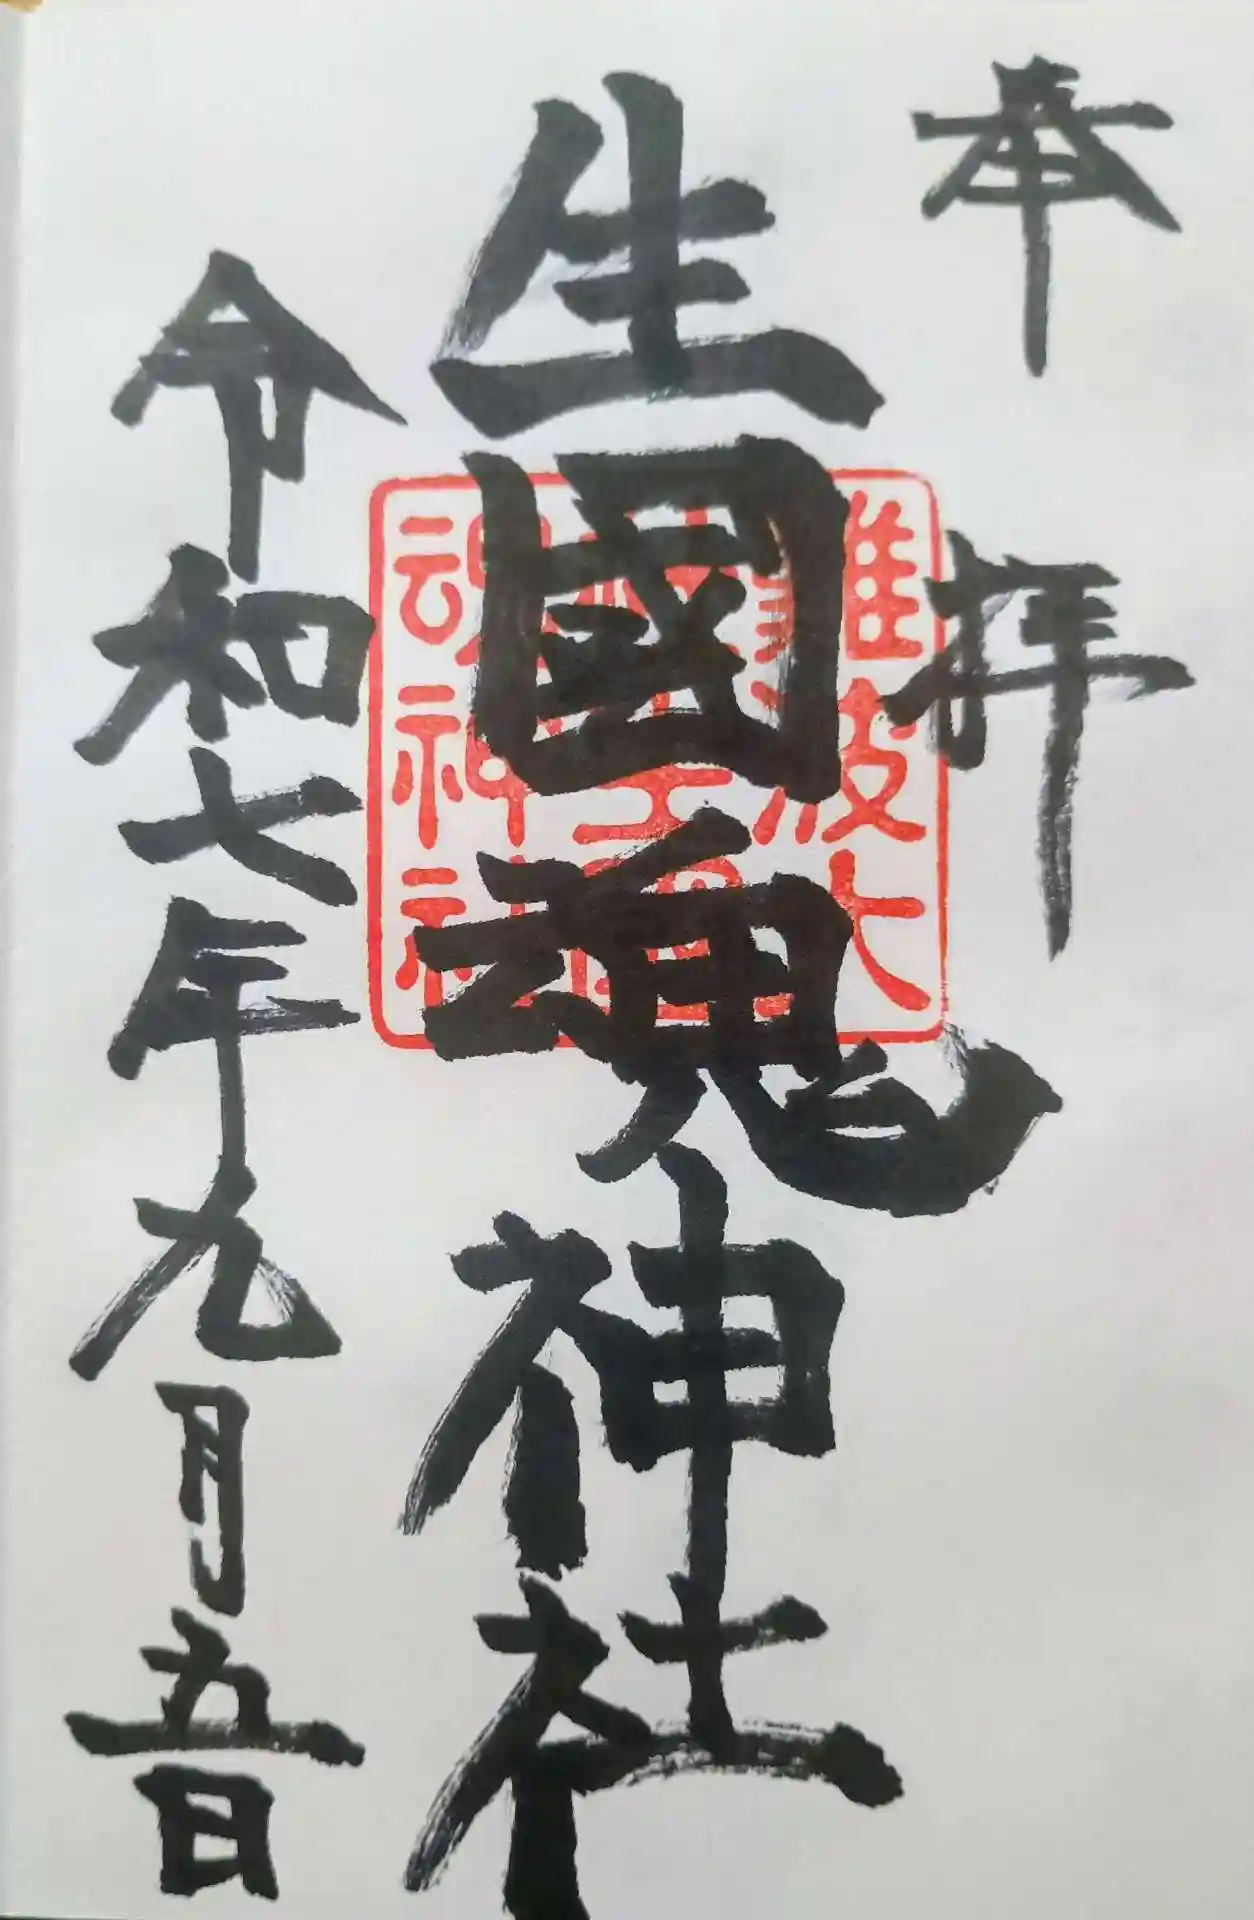 奉拝
生國魂神社
令和七年九月五日
難波大
魂神社